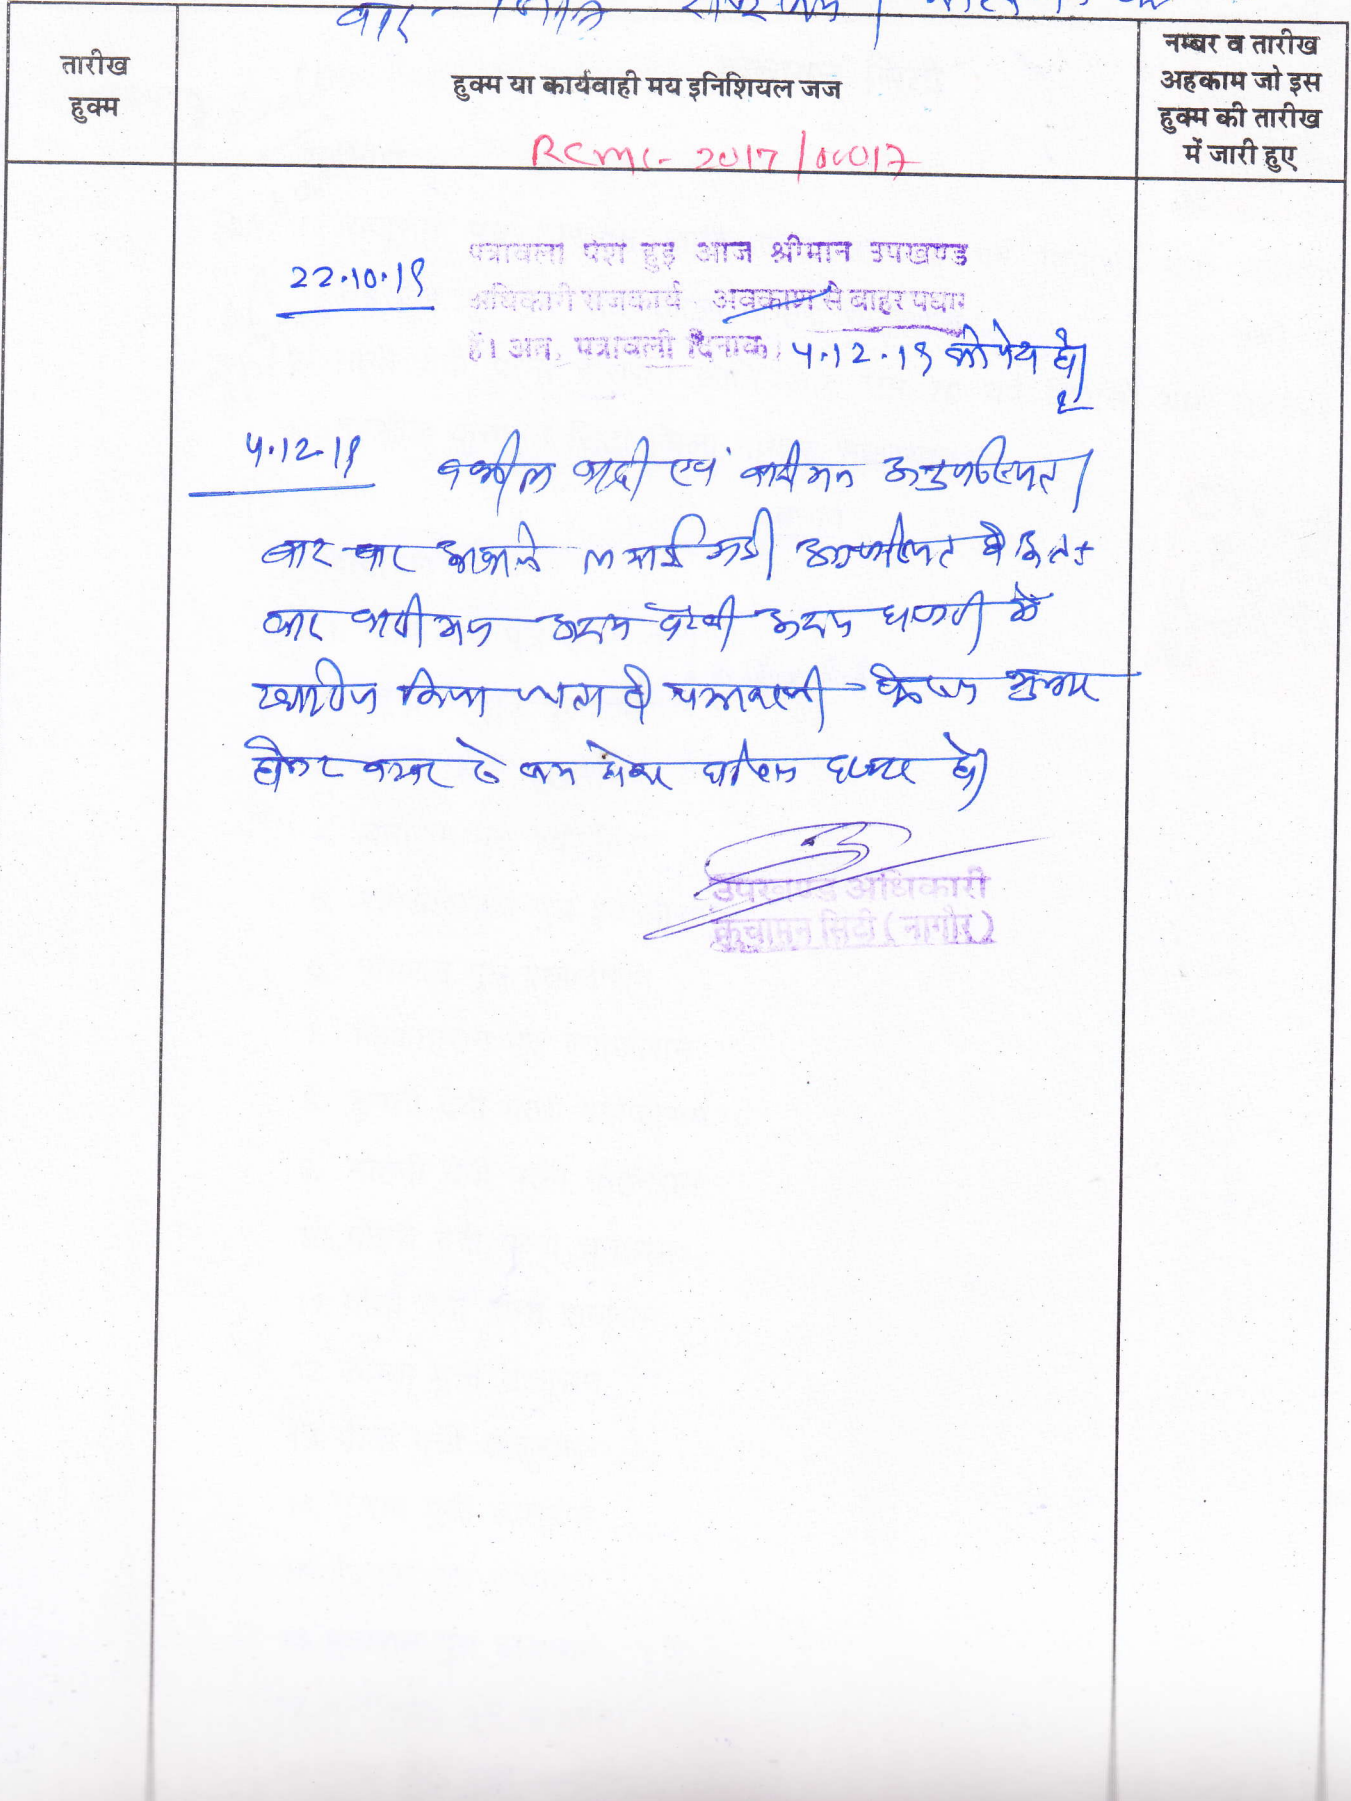 वाद
तारीख
हुक्म
हुक्म या कार्यवाही मय इनिशियल जज
नम्बर व तारीख
अहकाम जो इस
हुक्म की तारीख
में जारी हुए
RCMC- 2017/00017
22.10.19
पत्रावली पेश हुई आज श्रीमान उपखण्ड
अधिकारी राजकार्य अवकाश से बाहर पधारे
हैं। अतः पत्रावली दिनांक 4.12.19 को पेश हो।
4.12.19
वकील वादी एवं वादीगण अनुपस्थित।
बार बार आवाजे लगाई गई अनुपस्थित है अतः
वाद वादीगण अदम पैरवी अदम हाजरी में
खारीज किया जाता है पत्रावली फैसल शुमार
होकर नम्बर से कम होकर दाखिल दफ्तर हो।
उपखण्ड अधिकारी
कुचामन सिटी (नागौर)